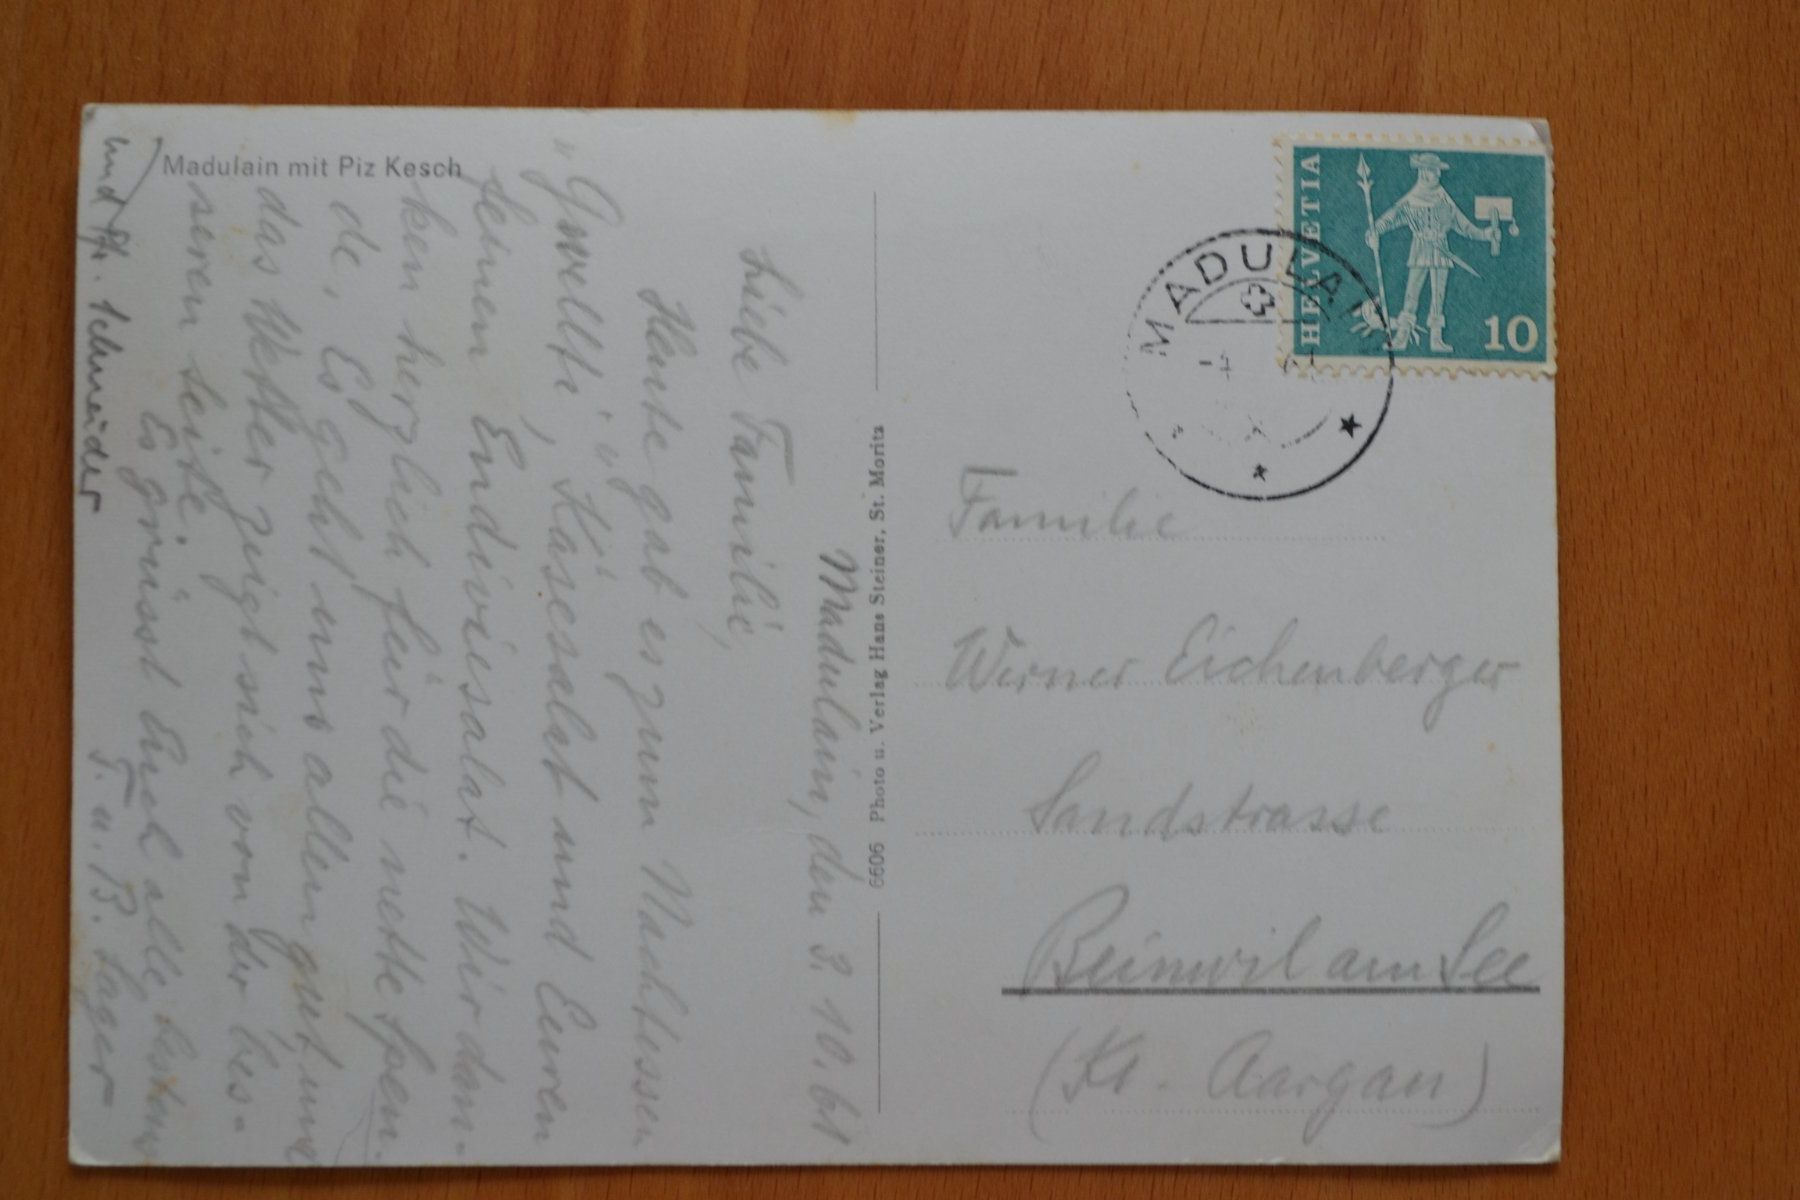 Madulain mit Piz Kesch
Madulain, den 3. 10. 61
Liebe Familie,
Heute gab es zum Nachtessen
"Gwellti", Käsesalat und Euren
feinen Endiviesalat. Wir dan-
ken herzlich für die nette Spen-
de. Es geht uns allen gut und
das Wetter zeigt sich von der bes-
seren Seite.
Es grüsst Euch alle bestens
F. u. B. Sager
und Schneider
6606 Photo u. Verlag Hans Steiner, St. Moritz
HELVETIA
10
MADULAIN
Familie
Werner Eichenberger
Sandstrasse
Beinwil am See
(Kt. Aargau)